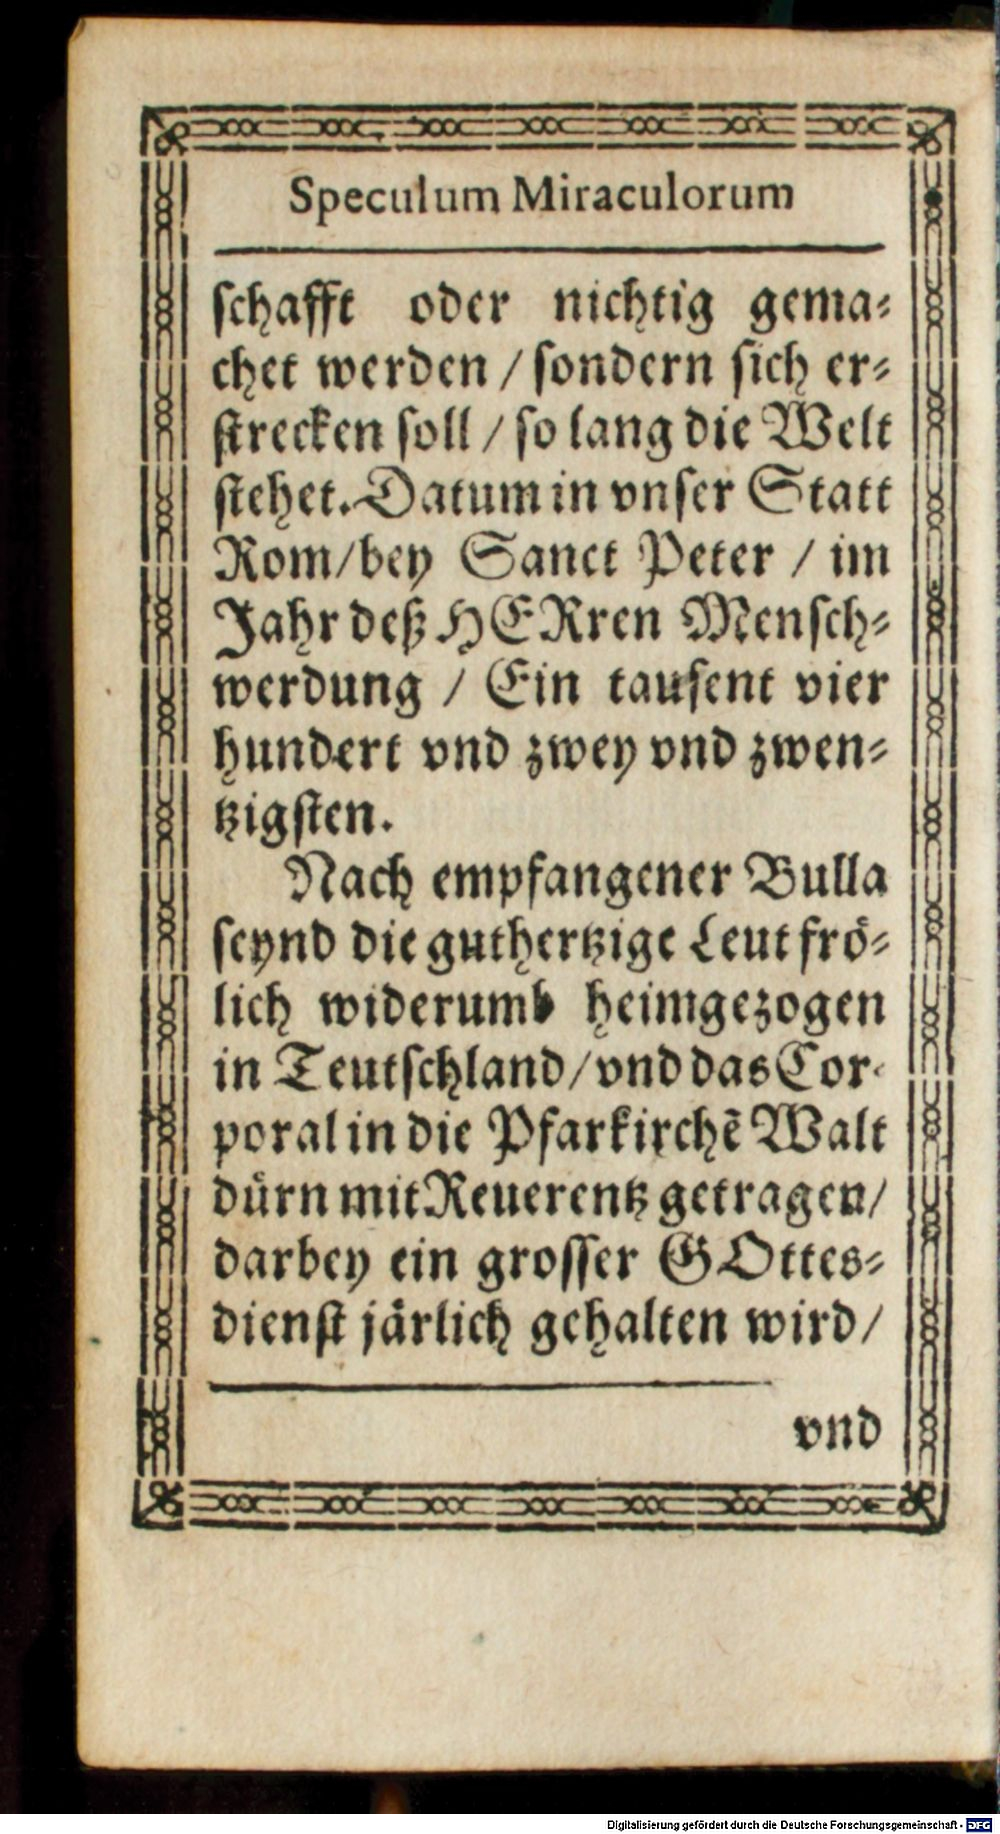 Speculum Miraculorum
schafft oder nichtig gema-
chet werden / sondern sich er-
strecken soll / so lang die Welt
stehet. Datum in vnser Statt
Rom/bey Sanct Peter / im
Jahr deß HERren Mensch-
werdung / Ein tausent vier
hundert vnd zwey vnd zwen-
tzigsten.
Nach empfangener Bulla
seynd die guthertzige Leut frö-
lich widerumb heimgezogen
in Teutschland/vnd das Cor-
poral in die Pfarkirchẽ Walt
dürn mit Reuerentz getragen/
darbey ein grosser GOttes-
dienst järlich gehalten wird/
vnd
Digitalisierung gefördert durch die Deutsche Forschungsgemeinschaft - DFG